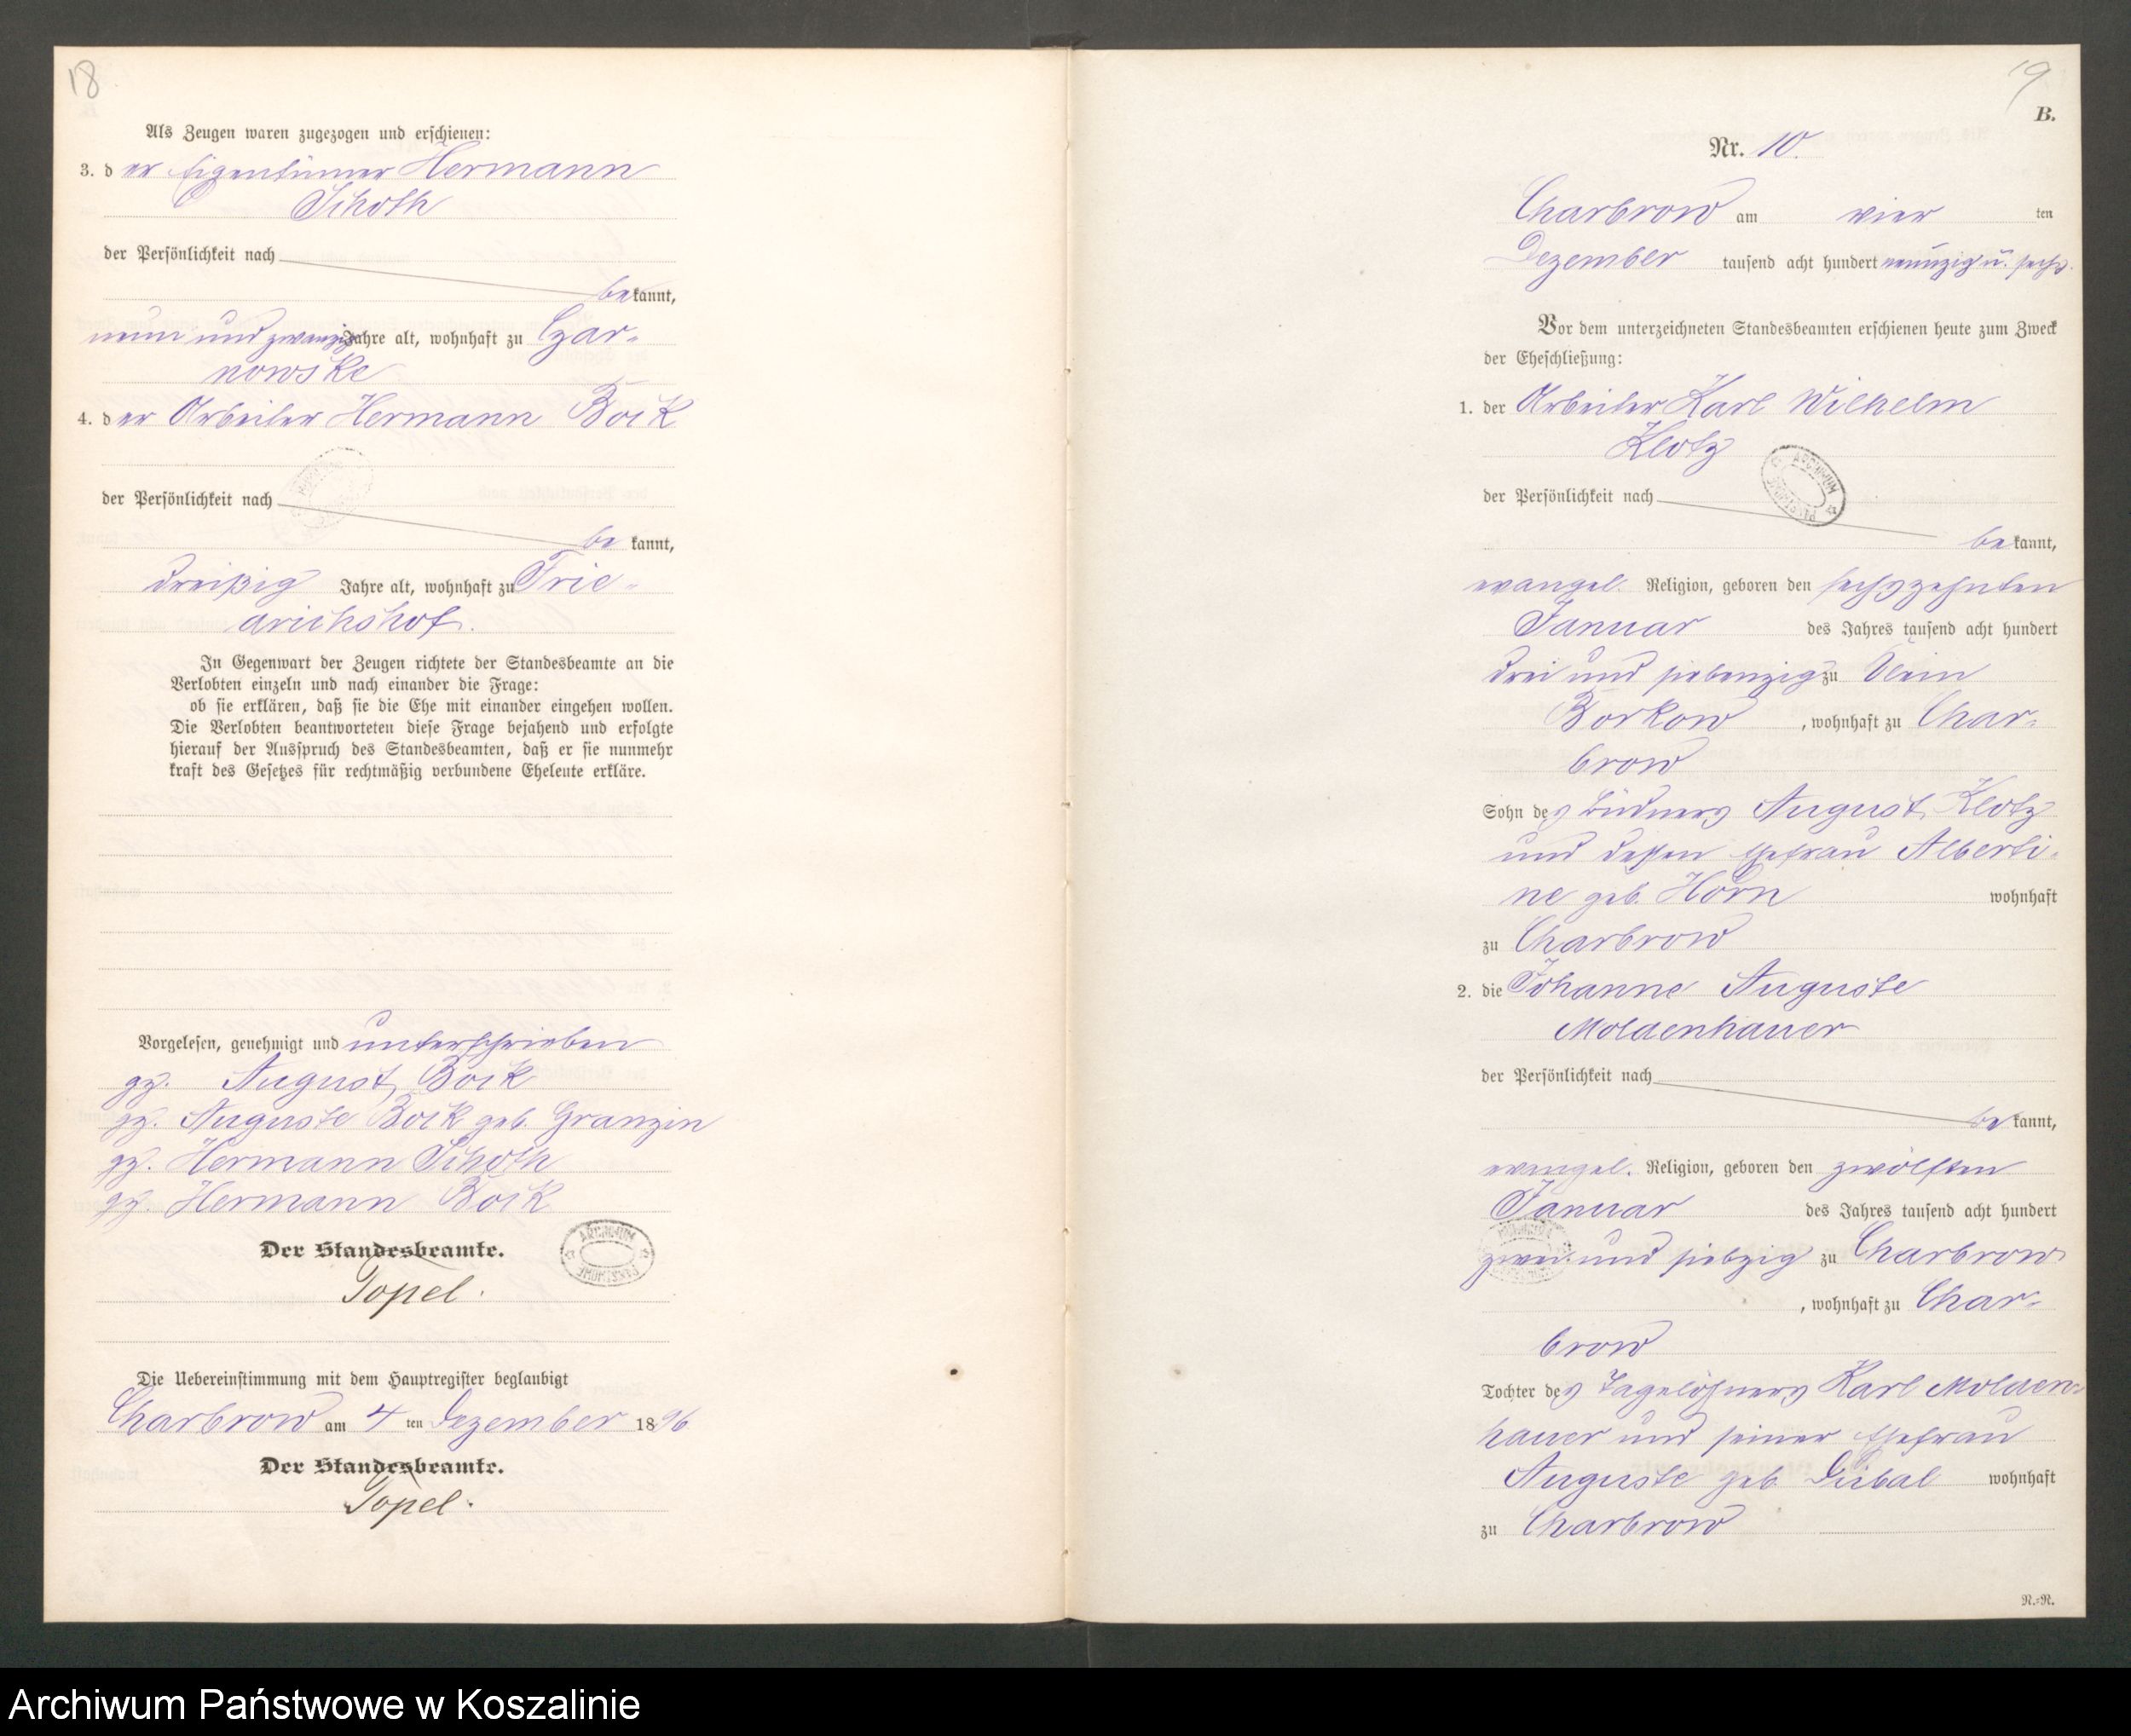 18
Als Zeugen waren zugezogen und erschienen:
3. der Eigentümer Hermann
Schoth
der Persönlichkeit nach
bekannt,
neun und zwanzig Jahre alt, wohnhaft zu Czar-
nowske
4. der Arbeiter Hermann Bock
der Persönlichkeit nach
bekannt,
dreißig Jahre alt, wohnhaft zu Frie-
drichshof.
In Gegenwart der Zeugen richtete der Standesbeamte an die
Verlobten einzeln und nach einander die Frage:
ob sie erklären, daß sie die Ehe mit einander eingehen wollen.
Die Verlobten beantworteten diese Frage bejahend und erfolgte
hierauf der Ausspruch des Standesbeamten, daß er sie nunmehr
kraft des Gesetzes für rechtmäßig verbundene Eheleute erkläre.
Vorgelesen, genehmigt und unterschrieben
gz. August Bock
gz. Auguste Bock geb. Granzin
gz. Hermann Schoth
gz. Hermann Bock
Der Standesbeamte.
Topel.
Die Uebereinstimmung mit dem Hauptregister beglaubigt
Charbrow am 4ten Dezember 1896
Der Standesbeamte.
Topel.
19
B.
Nr. 10.
Charbrow am vierten
Dezember tausend acht hundert neunzig u. sechs.
Vor dem unterzeichneten Standesbeamten erschienen heute zum Zweck
der Eheschließung:
1. der Arbeiter Karl Wilhelm
Klotz
ARCHIWUM PAŃSTWOWE
der Persönlichkeit nach
bekannt,
evangel. Religion, geboren den sechszehnten
Januar des Jahres tausend acht hundert
drei und siebenzig zu Klein
Borkow, wohnhaft zu Char-
brow
Sohn des Büdners August Klotz
und dessen Ehefrau Alberti-
ne geb. Horn wohnhaft
zu Charbrow
2. die Johanne Auguste
Moldenhauer
der Persönlichkeit nach
bekannt,
evangel. Religion, geboren den zwölften
Januar des Jahres tausend acht hundert
zwei und siebzig zu Charbrow
, wohnhaft zu Char-
brow
Tochter des Tagelöhners Karl Molden-
hauer und seiner Ehefrau
Auguste geb. Dubal wohnhaft
zu Charbrow
N.=N.
Archiwum Państwowe w Koszalinie